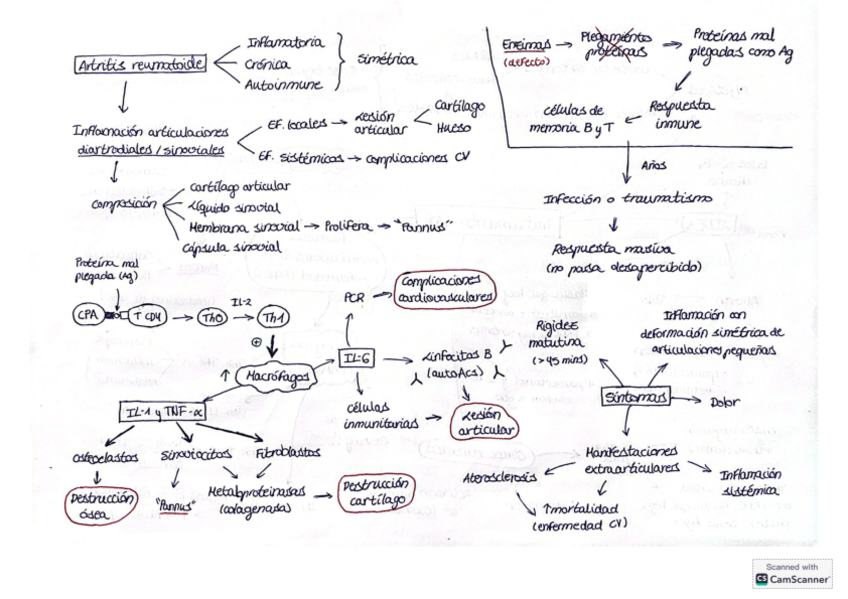 Artritis reumatoide
Inflamatoria
Crónica
Autoinmune
simétrica
Inflamación articulaciones
diartrodiales / sinoviales
EF. locales → Lesión
articular
Cartílago
Hueso
EF. sistémicos → complicaciones CV
Composición
Cartílago articular
Líquido sinovial
Membrana sinovial → Prolifera → "Pannus"
Cápsula sinovial
Enzimas
(defecto)
Plegamiento
proteínas
Proteínas mal
plegadas como Ag
Respuesta
inmune
Células de
memoria B y T
Años
Infección o traumatismo
Respuesta masiva
(no pasa desapercibido)
Proteína mal
plegada (Ag)
CPA
T CD4
Th0
IL-2
Th1
⊕
↑ Macrófagos
IL-6
PCR
Complicaciones
cardiovasculares
Linfocitos B
(autoAcs)
células
inmunitarias
Lesión
articular
IL-1 y TNF-α
Osteoclastos
Sinoviocitos
Fibroblastos
Destrucción
ósea
"Pannus"
Metaloproteinasas
(colagenasa)
Destrucción
cartílago
Síntomas
Rigidez
matutina
(>45 mins)
Inflamación con
deformación simétrica de
articulaciones pequeñas
Dolor
Manifestaciones
extraarticulares
Aterosclerosis
↑mortalidad
(enfermedad CV)
Inflamación
sistémica
Scanned with
CS CamScanner